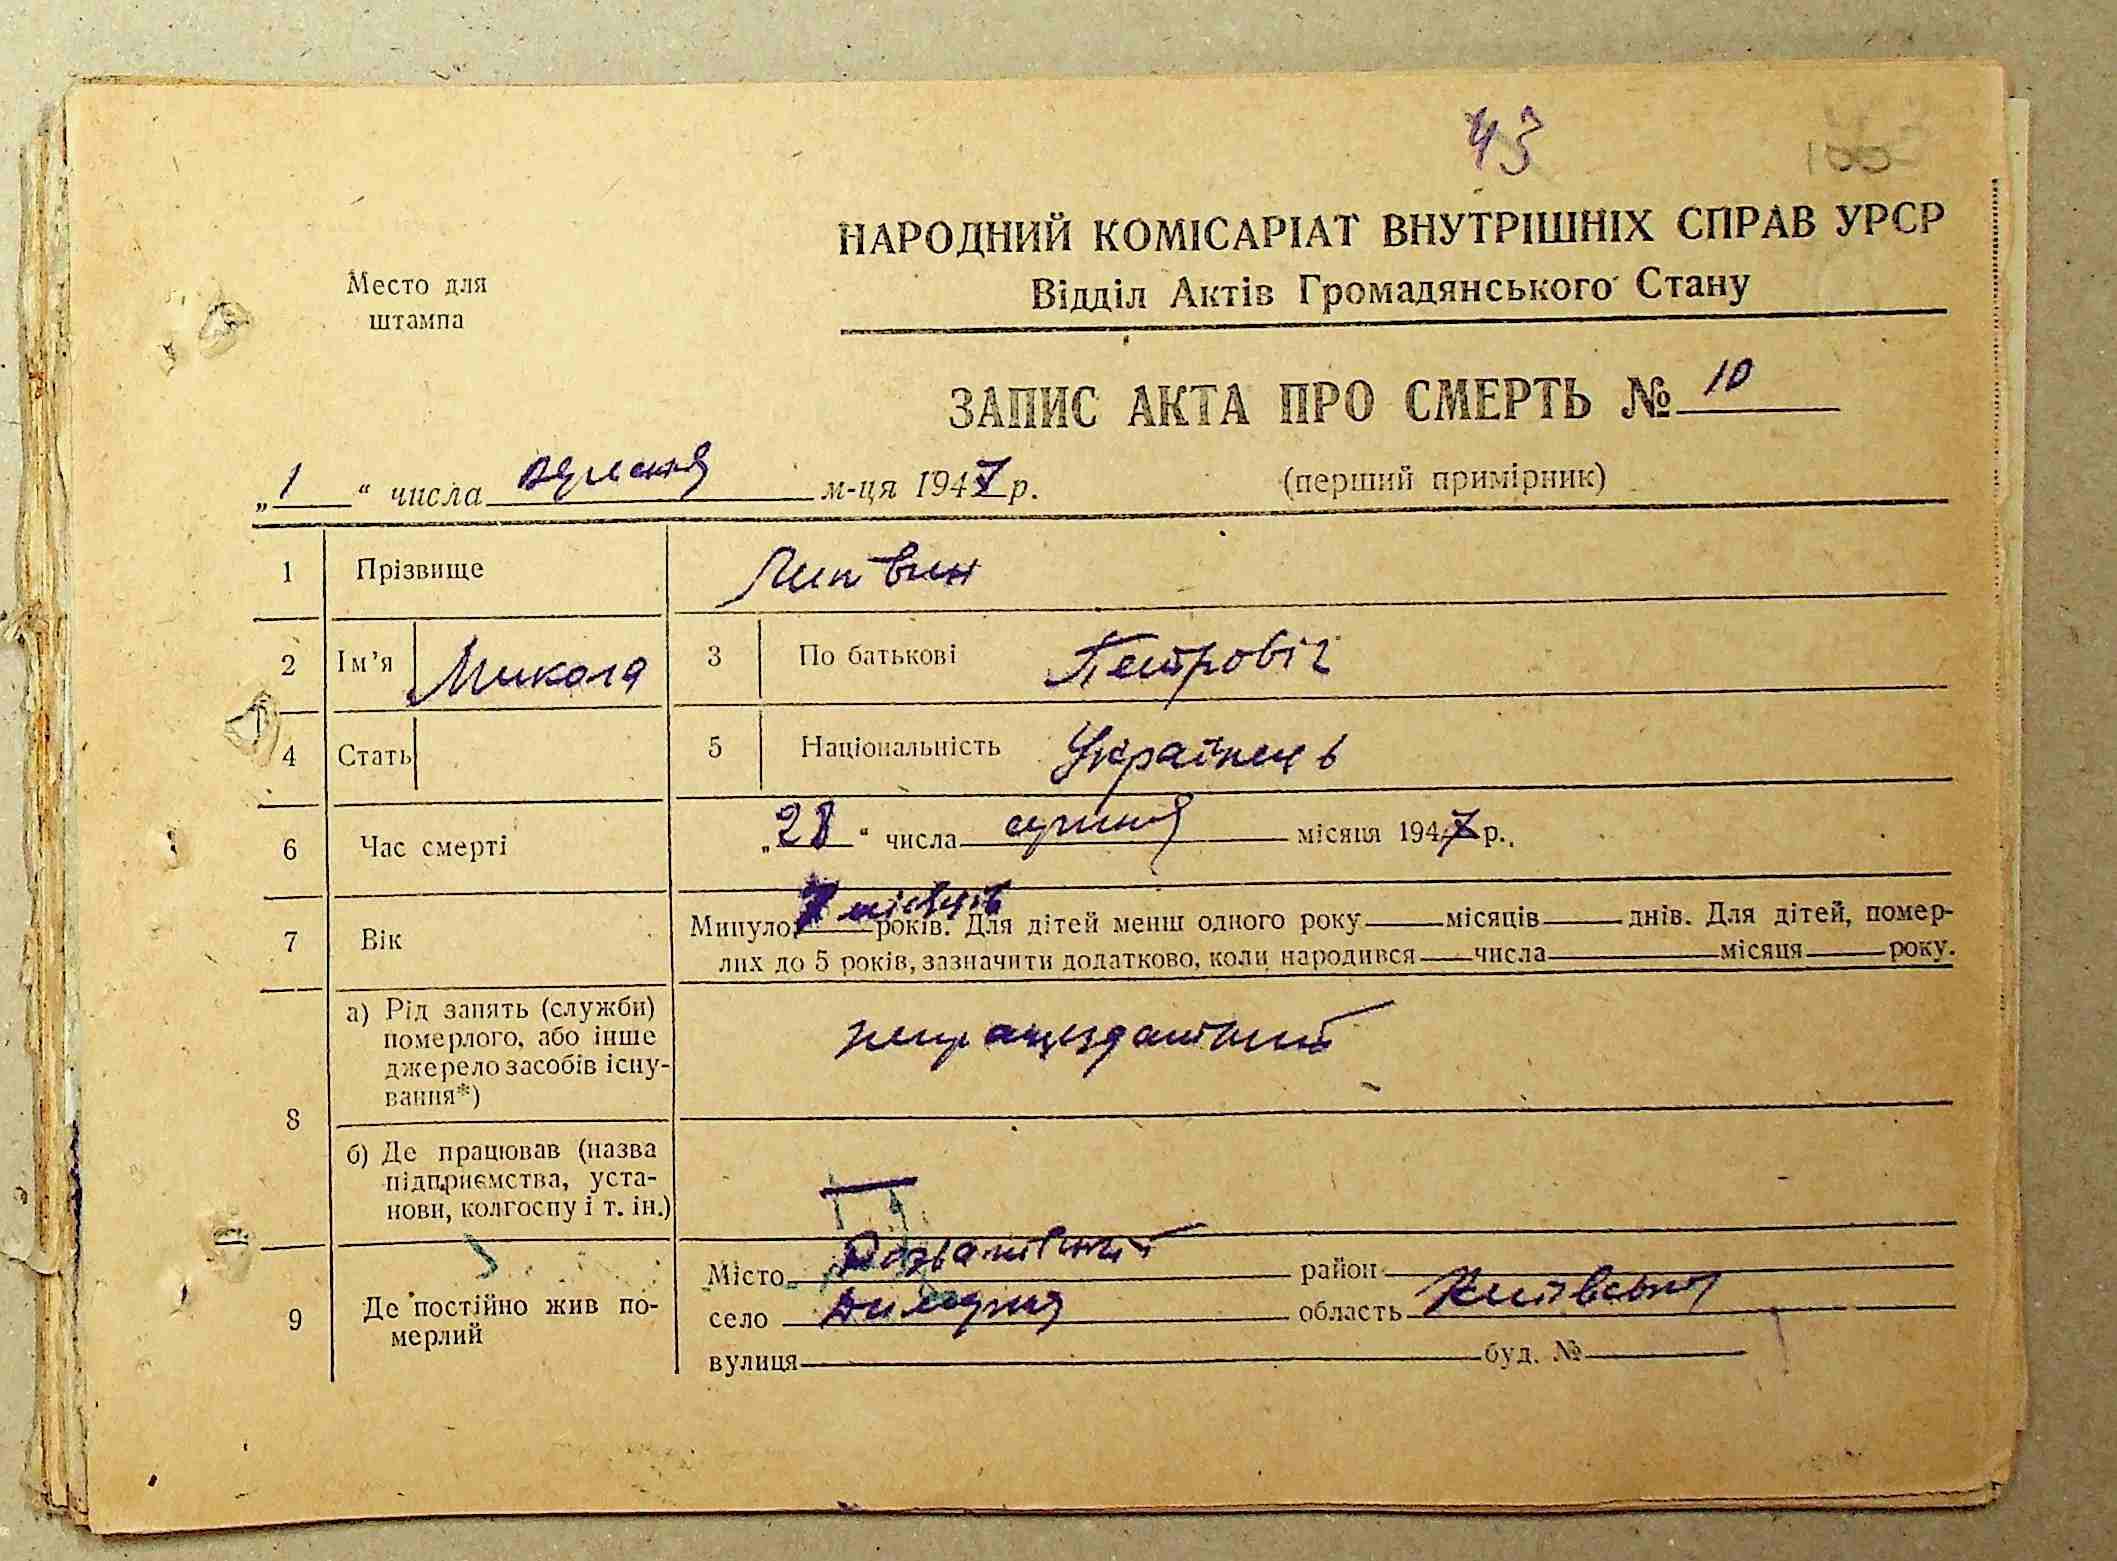 43
Место для
штампа
НАРОДНИЙ КОМІСАРІАТ ВНУТРІШНІХ СПРАВ УРСР
Відділ Актів Громадянського Стану
ЗАПИС АКТА ПРО СМЕРТЬ № 10
„1“ числа вересня м-ця 1947 р. (перший примірник)
1 Прізвище Литвин
2 Ім'я Микола 3 По батькові Петровіч
4 Стать 5 Національність Українець
6 Час смерті „28“ числа серпня місяця 1947 р.
7 Вік Минуло 7 місяців років. Для дітей менш одного року місяців днів. Для дітей, помер-
лих до 5 років, зазначити додатково, коли народився числа місяця року.
8 а) Рід занять (служби)
померлого, або інше
джерело засобів існу-
вання*)
непрацездатний
б) Де працював (назва
підприємства, уста-
нови, колгоспу і т. ін.)
—
9 Де постійно жив по-
мерлий
Місто Розважівський район
село область Київська
вулиця буд. №